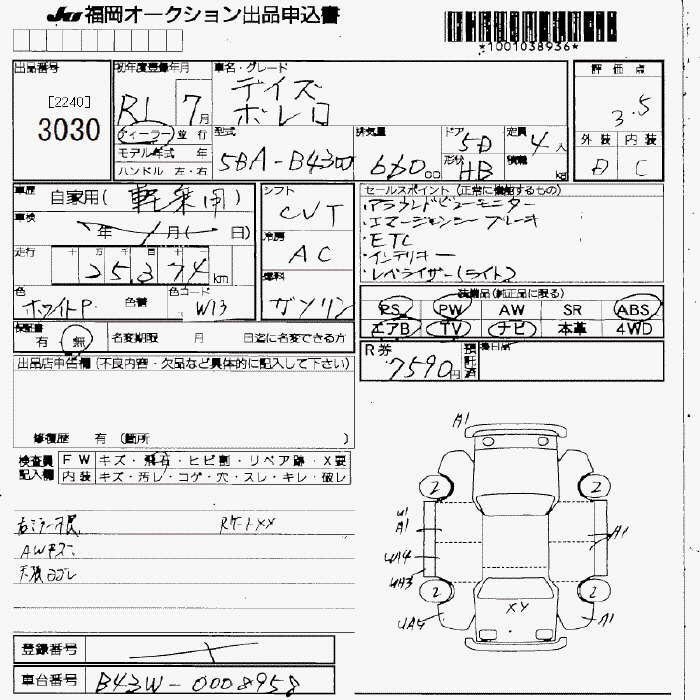 JU 福岡オークション出品申込書
*1001038936*
出品番号
[2240]
3030
初年度登録年月
R1 7月
ディーラー 並行
モデル年式 年
ハンドル 左・右
車名・グレード
デイズ
ボレロ
型式
5BA-B43W
排気量
660cc
ドア 5D
形状 HB
定員 4人
積載 kg
評価点
3.5
外装 内装
D C
車歴
自家用(軽乗用)
車検
年 月( 日)
走行
十 万 千 百 十
25,374 km
色
ホワイトP. 色替
色コード
W13
シフト
CVT
冷房
AC
燃料
ガソリン
セールスポイント (正常に機能するもの)
・アラウンドビューモニター
・エマージェンシーブレーキ
・ETC
・インテリキー
・レベライザー(ライト)
装備品(純正品に限る)
PS PW AW SR ABS
エアB TV ナビ 本革 4WD
保証書
有・無
名変期限 月 日迄に名変できる方
R券
7590円
預託済
後日品
出品店申告欄 (不良内容・欠品など具体的に記入して下さい)
修復歴 有 (箇所 )
検査員記入欄
FW キズ・飛石・ヒビ割・リペア跡・X要
内装 キズ・汚レ・コゲ・穴・スレ・キレ・破レ
右ミラー不良 Rゲート××
AWキズ
天張ヨゴレ
A1
2 2
U1
A1
A1
UA4
UA3
2 2
UA4
XY
A1
登録番号
車台番号 B43W-0008958